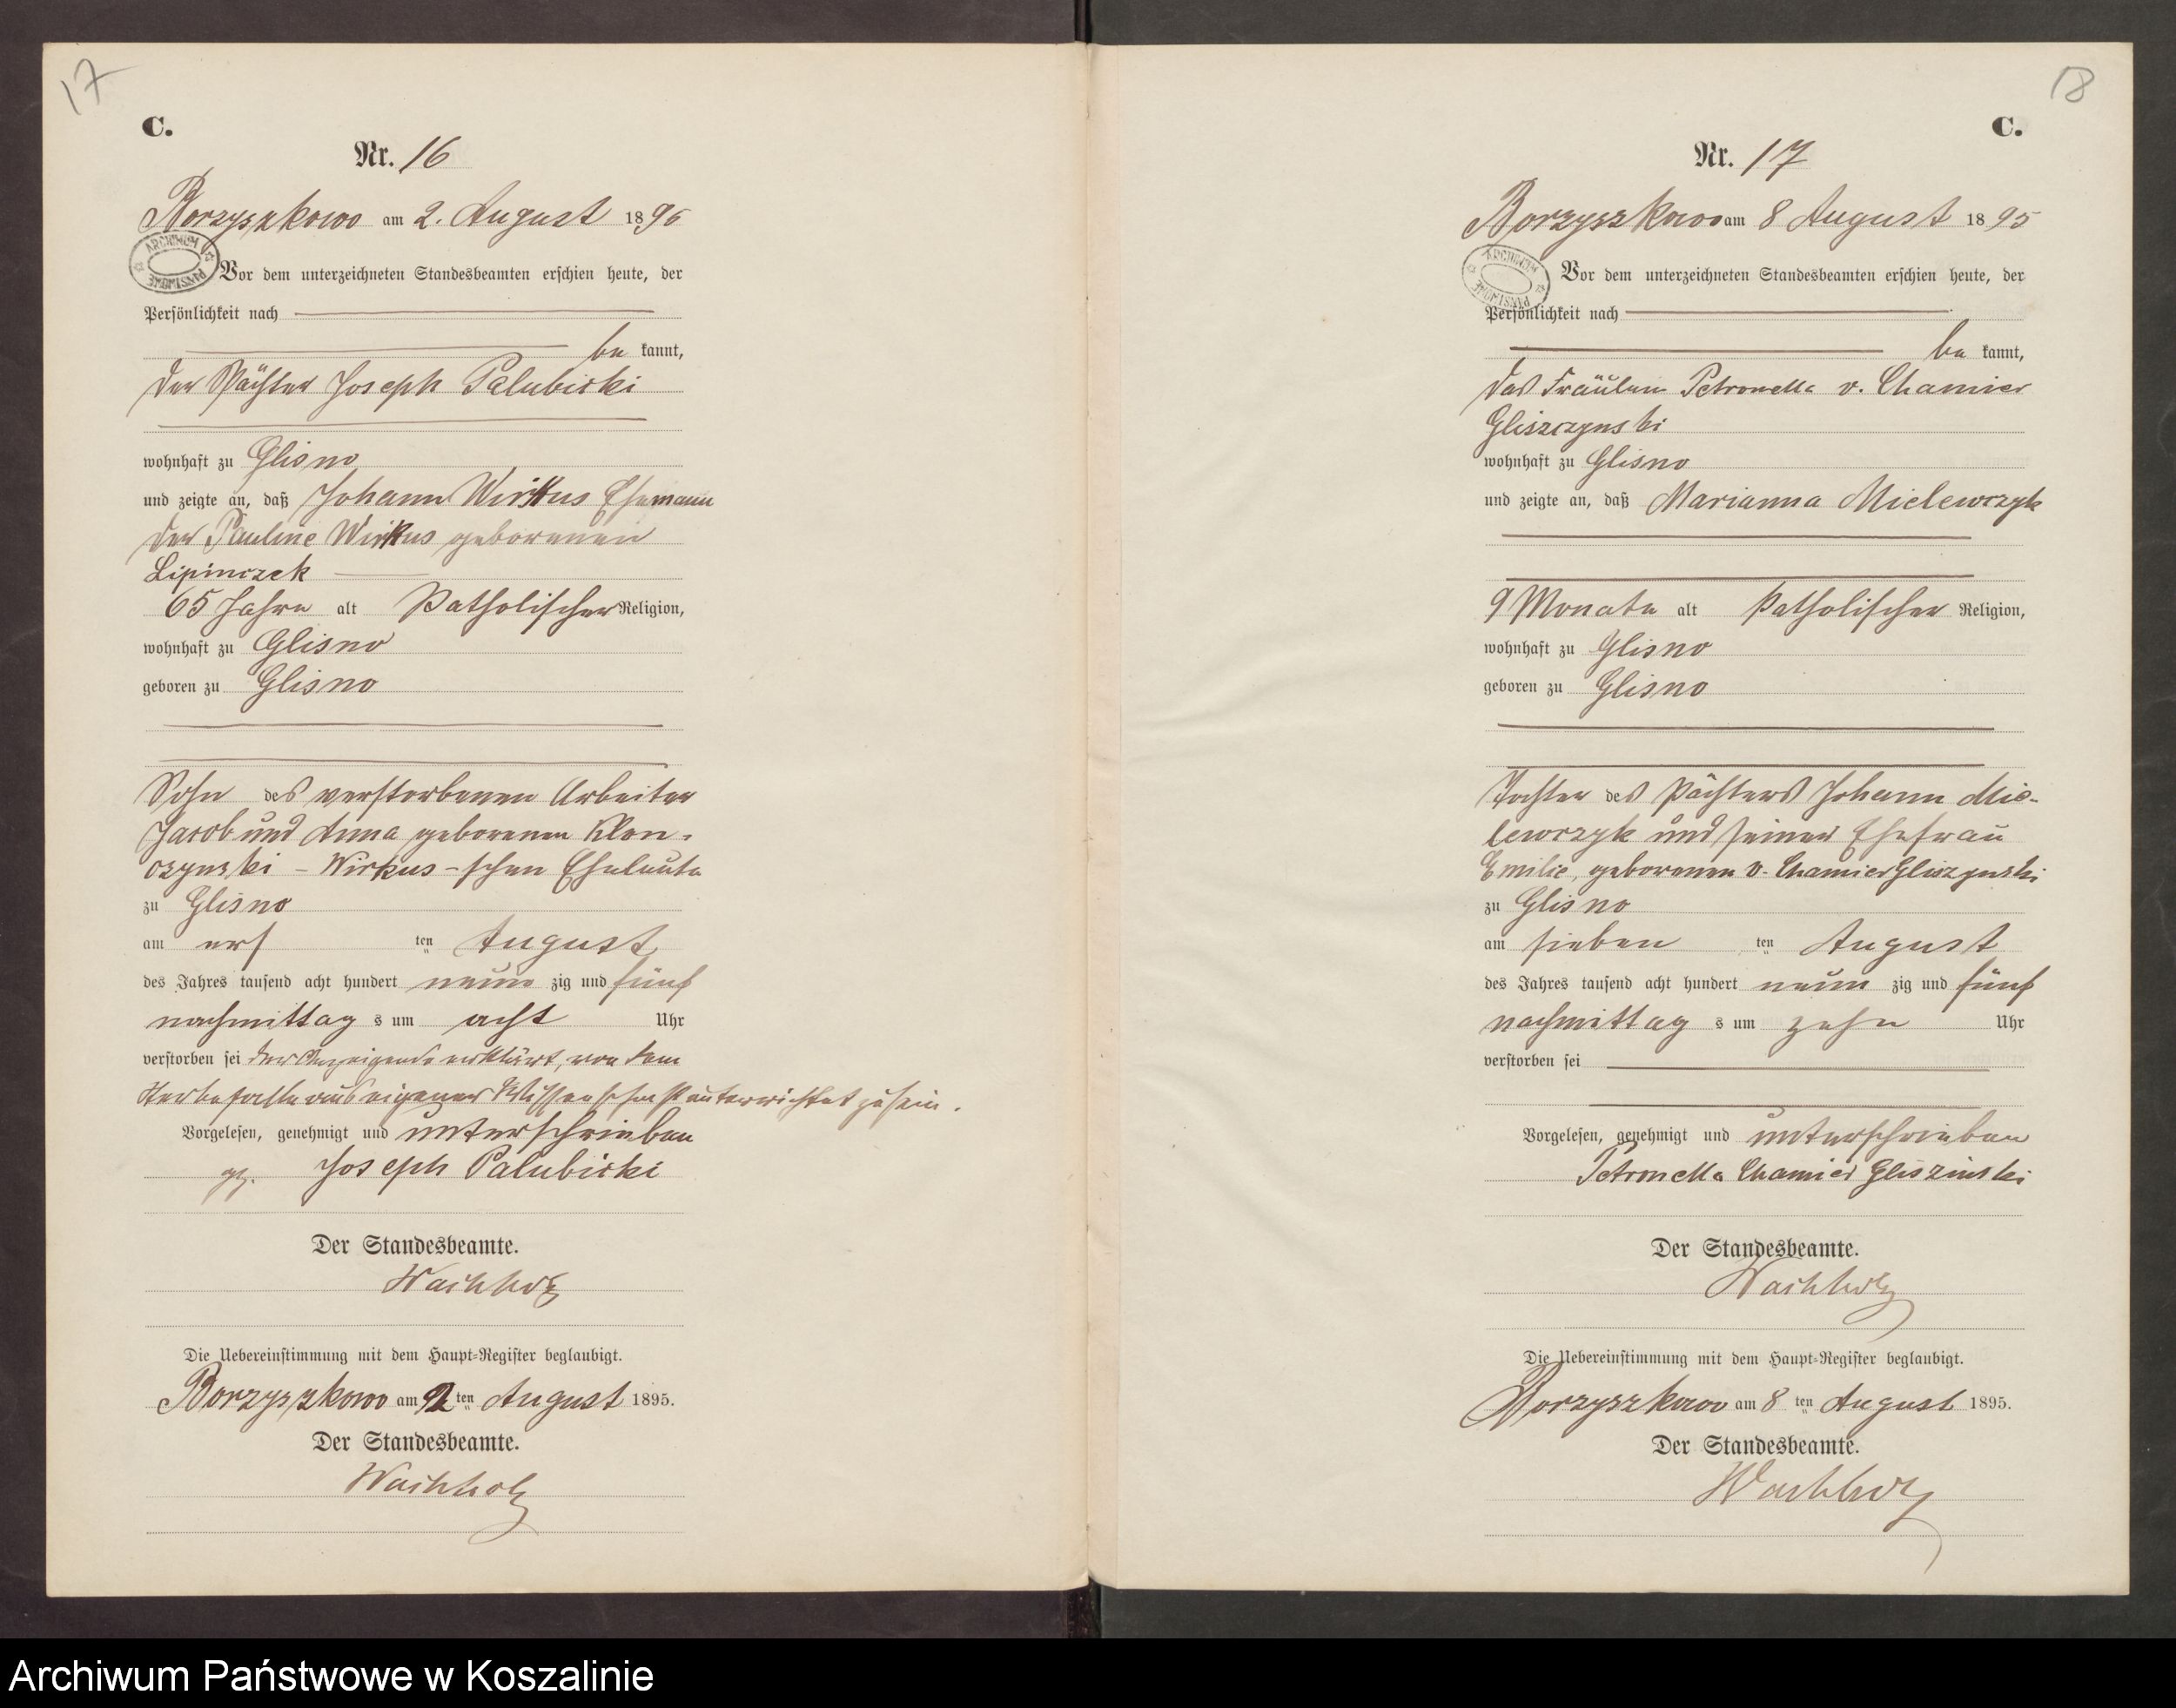 17
C.
Nr. 16
Borzyszkowo am 2. August 1895
ARCHIWUM PAŃSTWOWE
Vor dem unterzeichneten Standesbeamten erschien heute, der
Persönlichkeit nach
be kannt,
der Pächter Joseph Palubicki
wohnhaft zu Glisno
und zeigte an, daß Johann Wirkus Ehemann
der Pauline Wirkus geborenen
Lipinczek
65 Jahre alt katholischer Religion,
wohnhaft zu Glisno
geboren zu Glisno
Sohn des verstorbenen Arbeiter
Jacob und Anna geborenen Klon-
czynski - Wirkus - schen Eheleute
zu Glisno
am erst ten August
des Jahres tausend acht hundert neun zig und fünf
nachmittag s um acht Uhr
verstorben sei der Anzeigende erklärt, von dem
Sterbefalle aus eigener Wissenschaft unterrichtet zu sein.
Vorgelesen, genehmigt und unterschrieben
gz. Joseph Palubicki
Der Standesbeamte.
Wachholz
Die Uebereinstimmung mit dem Haupt-Register beglaubigt.
Borzyszkowo am 2 ten August 1895.
Der Standesbeamte.
Wachholz
18
C.
Nr. 17
Borzyszkowo am 8 August 1895
ARCHIWUM PAŃSTWOWE
Vor dem unterzeichneten Standesbeamten erschien heute, der
Persönlichkeit nach
be kannt,
das Fräulein Petronella v. Chamier
Gliszczynski
wohnhaft zu Glisno
und zeigte an, daß Marianna Mielewczyk
9 Monate alt katholischer Religion,
wohnhaft zu Glisno
geboren zu Glisno
Tochter des Pächters Johann Mie-
lewczyk und seiner Ehefrau
Emilie, geborenen v. Chamier Gliszynski
zu Glisno
am sieben ten August
des Jahres tausend acht hundert neun zig und fünf
nachmittag s um zehn Uhr
verstorben sei
Vorgelesen, genehmigt und unterschrieben
Petronella Chamier Gliszinski
Der Standesbeamte.
Wachholz
Die Uebereinstimmung mit dem Haupt-Register beglaubigt.
Borzyszkowo am 8 ten August 1895.
Der Standesbeamte.
Wachholz
Archiwum Państwowe w Koszalinie